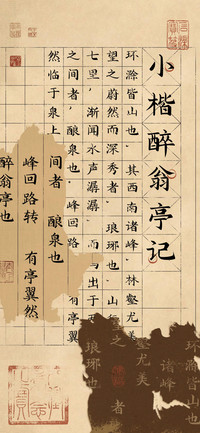 小楷醉翁亭记
环滁皆山也。其西南诸峰，林壑尤美
望之蔚然而深秀者，琅琊也。山
七里，渐闻水声潺 出于两
之间者，酿泉也。峰回路
然临于泉上
间者 酿泉也
峰回路转 有亭翼然
醉翁亭也
环滁皆山也
诸峰
壑尤美
之 者
琅琊也